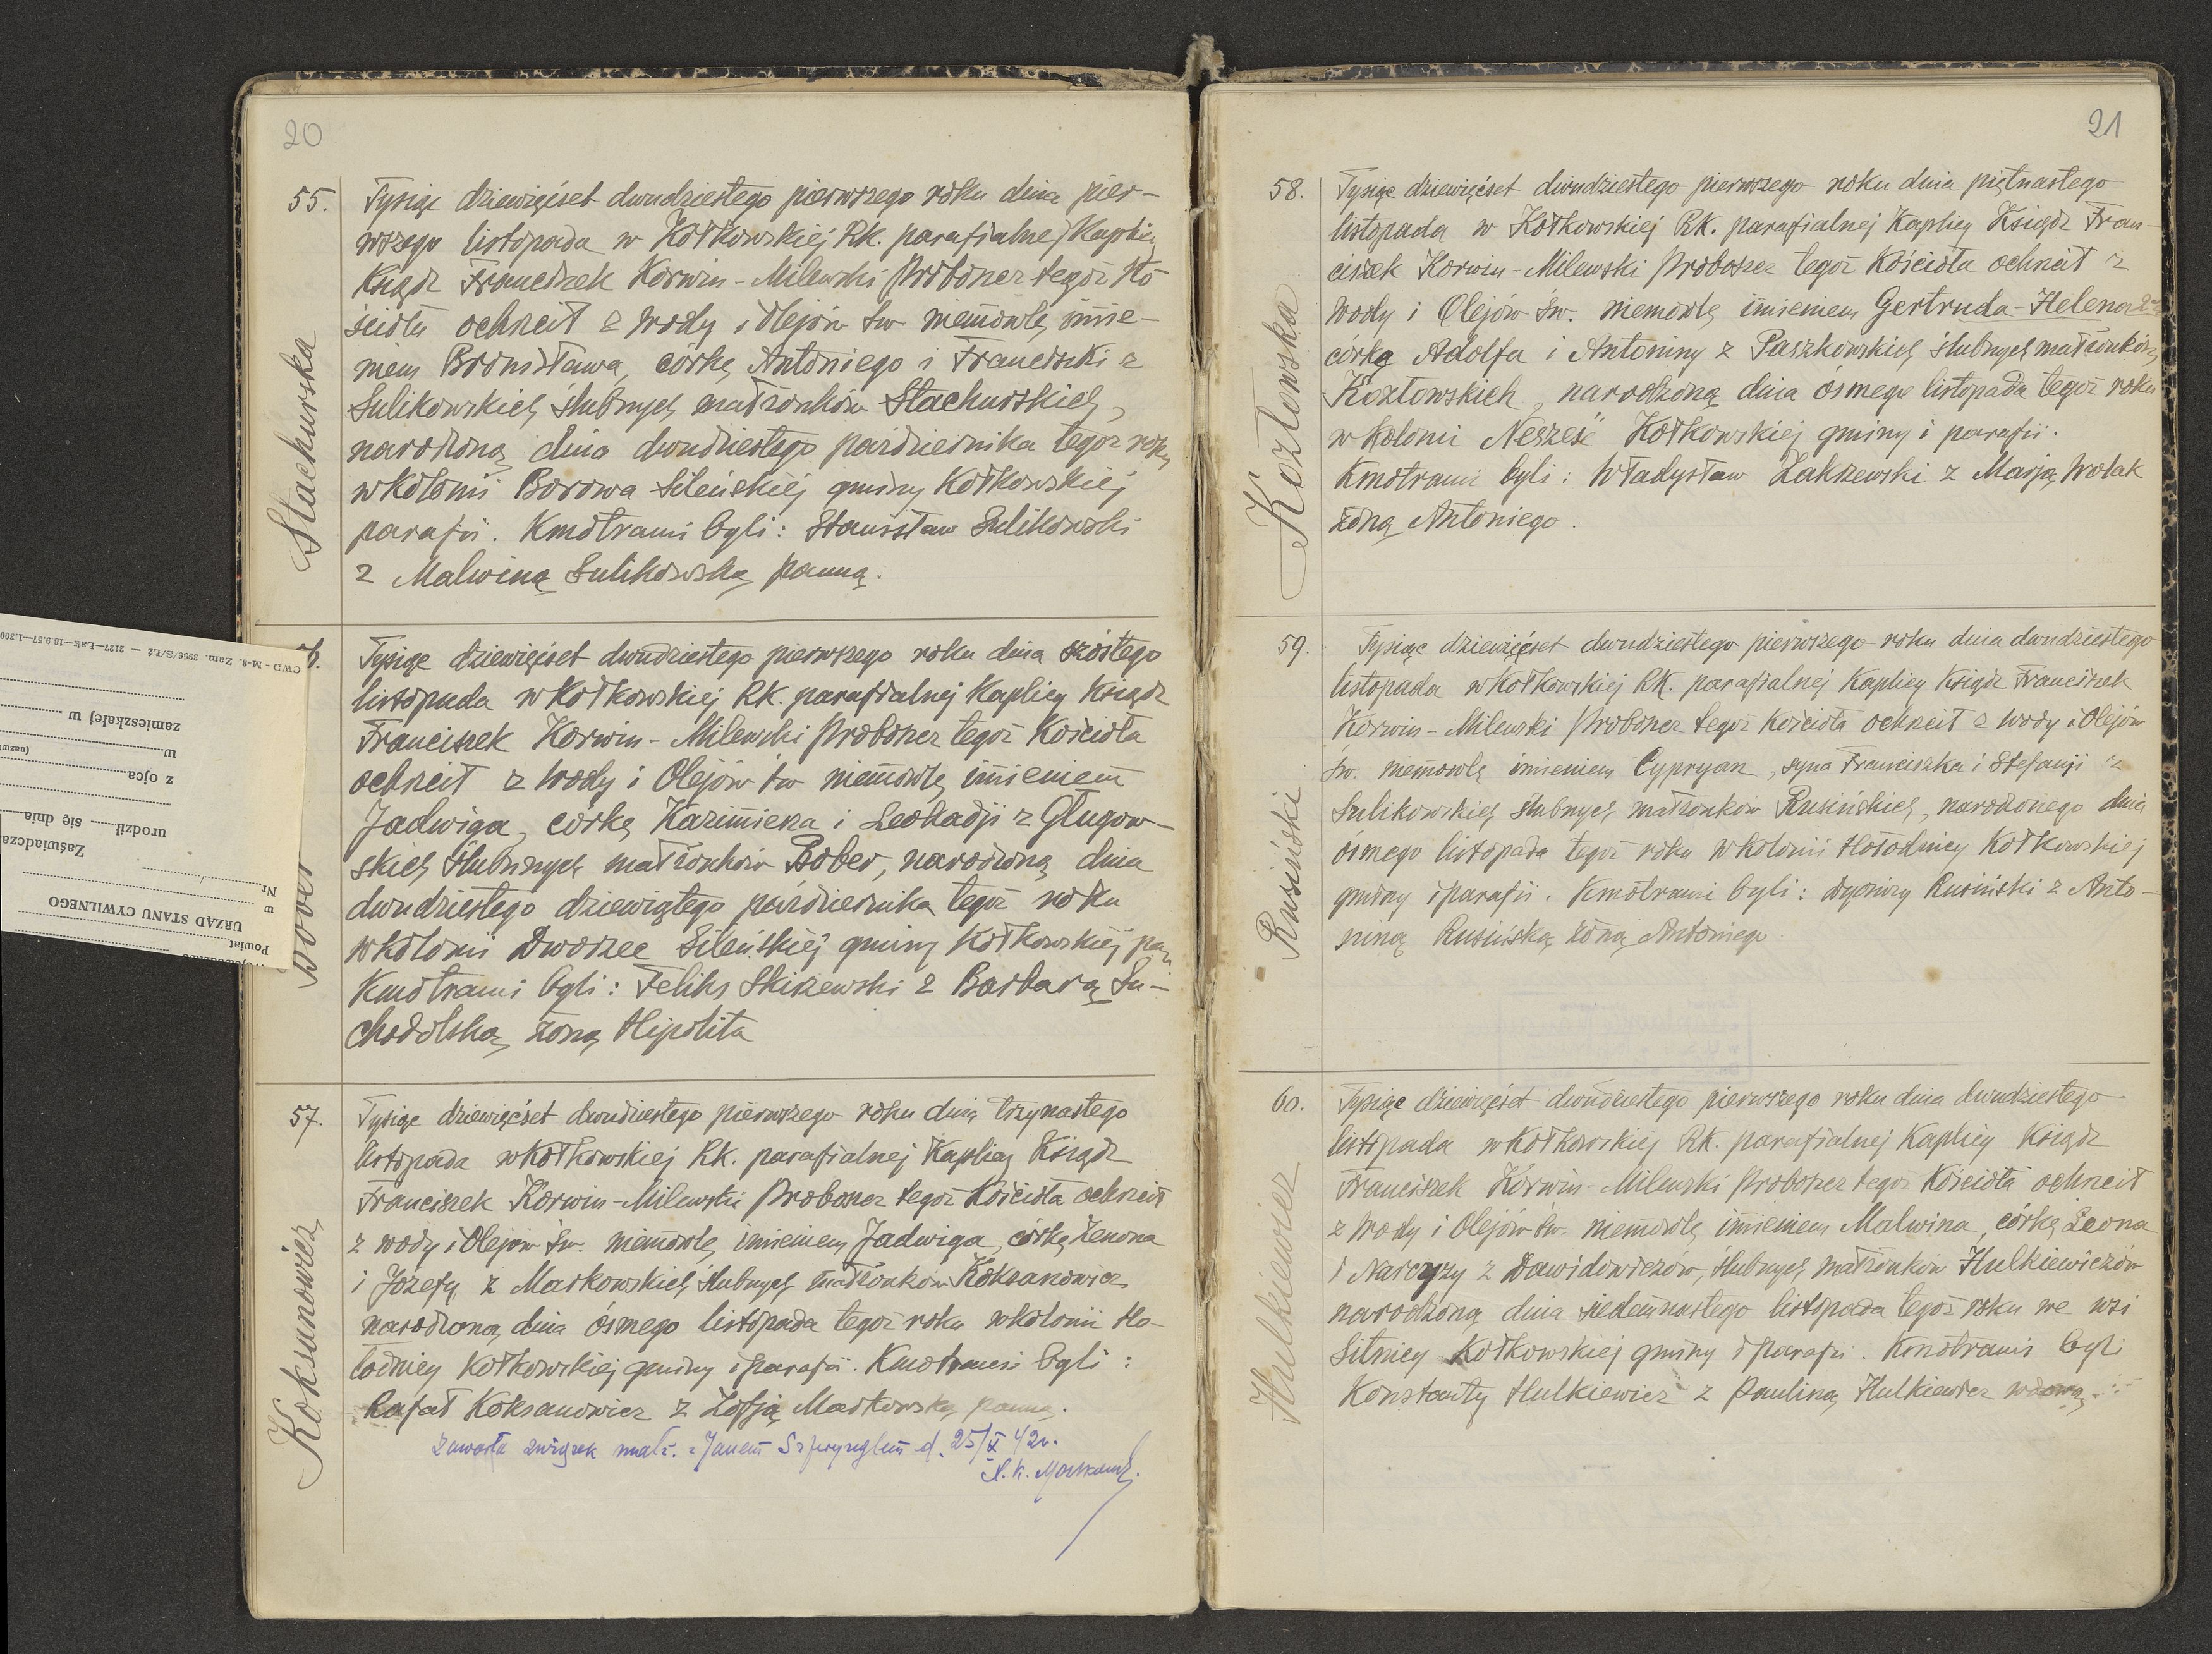 20
55.
Stachurska
Tysiąc dziewięćset dwudziestego pierwszego roku dnia pier-
wszego listopada w Kołkowskiej RK. parafialnej Kaplicy
Ksiądz Franciszek Korwin-Milewski Proboszcz tegoż Ko-
ścioła ochrcił z wody i Olejów św niemowlę imie-
niem Bronisława, córkę Antoniego i Franciszki z
Sulikowskich ślubnych małżonków Stachurskich,
narodzoną dnia dwudziestego października tegoż roku
w kolonii Borowa Sileńskiej gminy Kołkowskiej
parafii. Kmotrami byli: Stanisław Sulikowski
z Malwiną Sulikowską panną.
6.
Bober
Tysiąc dziewięćset dwudziestego pierwszego roku dnia szóstego
listopada w Kołkowskiej RK. parafialnej Kaplicy Ksiądz
Franciszek Korwin-Milewski Proboszcz tegoż Kościoła
ochrcił z wody i Olejów św niemowlę imieniem
Jadwiga, córkę Kazimierza i Leokadji z Gługow-
skich ślubnych małżonków Bober, narodzoną dnia
dwudziestego dziewiątego października tegoż roku
w kolonii Dworzec Sileńskiej gminy Kołkowskiej par.
Kmotrami byli: Feliks Skirzewski z Barbarą Su-
chodolską żoną Hipolita
57.
Koksanowicz
Tysiąc dziewięćset dwudziestego pierwszego roku dnia trzynastego
listopada w Kołkowskiej RK. parafialnej Kaplicy Ksiądz
Franciszek Korwin-Milewski Proboszcz tegoż Kościoła ochrcił
z wody i Olejów św. niemowlę imieniem Jadwiga, córkę Zenona
i Józefy z Markowskich ślubnych małżonków Koksanowicz
narodzoną dnia ósmego listopada tegoż roku w kolonii Ho-
łodnicy Kołkowskiej gminy i parafii. Kmotrami byli:
Rafał Koksanowicz z Zofją Markowską panną.
Zawarła związek małż. z Janem d. 25/X 42r.
CWD - M-8. Zam. 3556/S/Łż — 2127—Łak—18.9.57—1.300
zamieszkałej w
w
(nazwa
z ojca
urodził się dnia
Zaświadcza
Nr
w
URZĄD STANU CYWILNEGO
Powiat
21
58.
Kozłowska
Tysiąc dziewięćset dwudziestego pierwszego roku dnia piętnastego
listopada w Kołkowskiej RK. parafialnej Kaplicy Ksiądz Fran-
ciszek Korwin-Milewski Proboszcz tegoż Kościoła ochrcił z
wody i Olejów św. niemowlę imieniem Gertruda-Helena
córkę Adolfa i Antoniny z Paszkowskich ślubnych małżonków
Kozłowskich, narodzoną dnia ósmego listopada tegoż roku
w kolonii Nesześć Kołkowskiej gminy i parafii.
Kmotrami byli: Władysław Zakrzewski z Marją Wolak
żoną Antoniego.
59.
Rusiński
Tysiąc dziewięćset dwudziestego pierwszego roku dnia dwudziestego
listopada w Kołkowskiej RK. parafialnej Kaplicy Ksiądz Franciszek
Korwin-Milewski Proboszcz tegoż Kościoła ochrcił z wody i Olejów
św. niemowlę imieniem Cypryan, syna Franciszka i Stefanji z
Sulikowskich ślubnych małżonków Rusińskich, narodzonego dnia
ósmego listopada tegoż roku w kolonii Hołodnicy Kołkowskiej
gminy i parafii. Kmotrami byli: Dyonizy Rusiński z Anto-
niną Rusińską żoną Antoniego.
60.
Hulkiewicz
Tysiąc dziewięćset dwudziestego pierwszego roku dnia dwudziestego
listopada w Kołkowskiej RK. parafialnej Kaplicy Ksiądz
Franciszek Korwin-Milewski Proboszcz tegoż Kościoła ochrcił
z wody i Olejów św. niemowlę imieniem Malwina, córkę Leona
i Narcyzy z Dawidowiczów, ślubnych małżonków Hulkiewiczów
narodzoną dnia siedemnastego listopada tegoż roku we wsi
Sitnicy Kołkowskiej gminy i parafii. Kmotrami byli
Konstanty Hulkiewicz z Pauliną Hulkiewicz wdową.